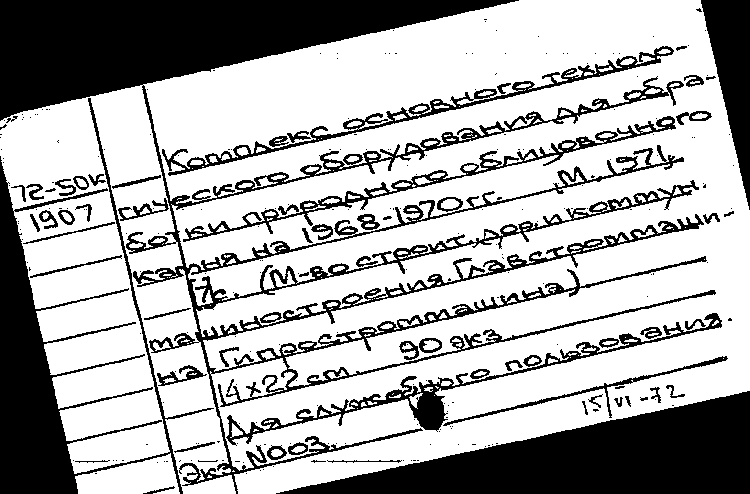 Комплекс основного техноло-
72-50к гического оборудования для обра-
1907 ботки природного облицовочного
камня на 1968-1970 гг. М., 1971,
[7]с. (М-во строит., дор. и коммун.
машиностроения. Главстроммаши-
на. Гипростроммашина).
14x22 cm. 90 экз.
Для служебного пользования.
Экз. N003.
15/VI-72